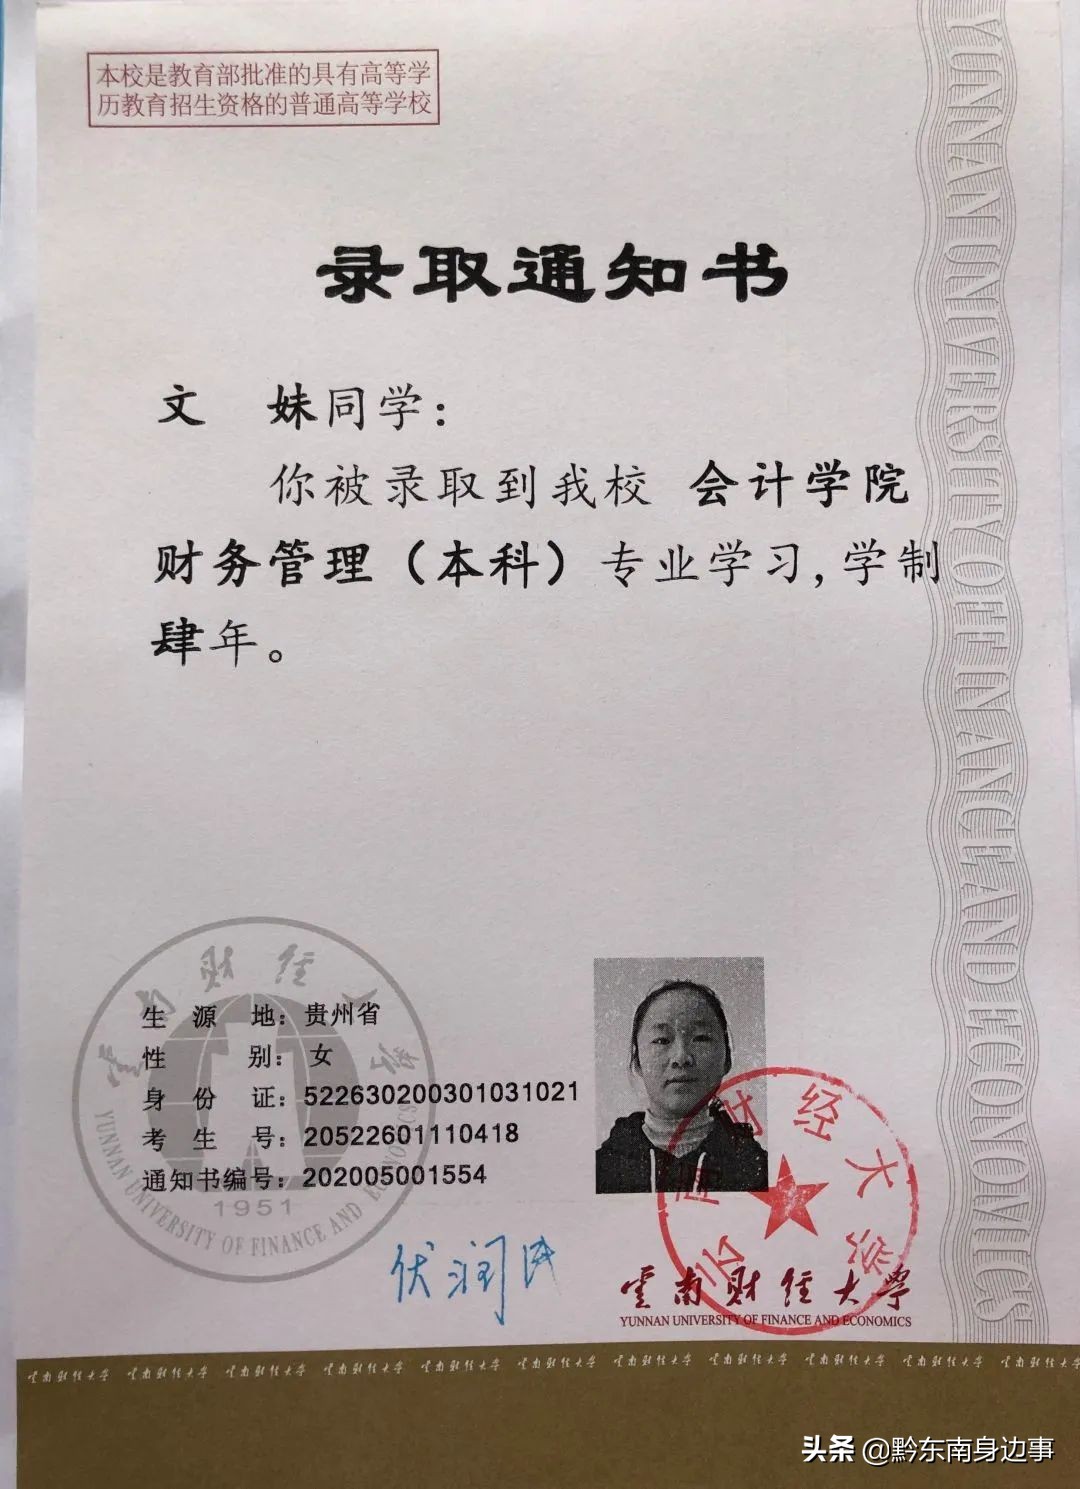 本校是教育部批准的具有高等学
历教育招生资格的普通高等学校
录取通知书
文 妹同学：
你被录取到我校 会计学院
财务管理（本科）专业学习，学制
肆年。
生源地：贵州省
性别：女
身份证：522630200301031021
考生号：20522601110418
通知书编号：202005001554
云南财经大学
YUNNAN UNIVERSITY OF FINANCE AND ECONOMICS
1951
伏润民
云南财经大学
雲南财经大學
YUNNAN UNIVERSITY OF FINANCE AND ECONOMICS
YUNNAN UNIVERSITY OF FINANCE AND ECONOMICS
云南财经大学 云南财经大学 云南财经大学 云南财经大学 云南财经大学 云南财经大学 云南财经大学 云南财经大学 云南财经大学 云南财经大学 云南财经大学
头条 @黔东南身边事